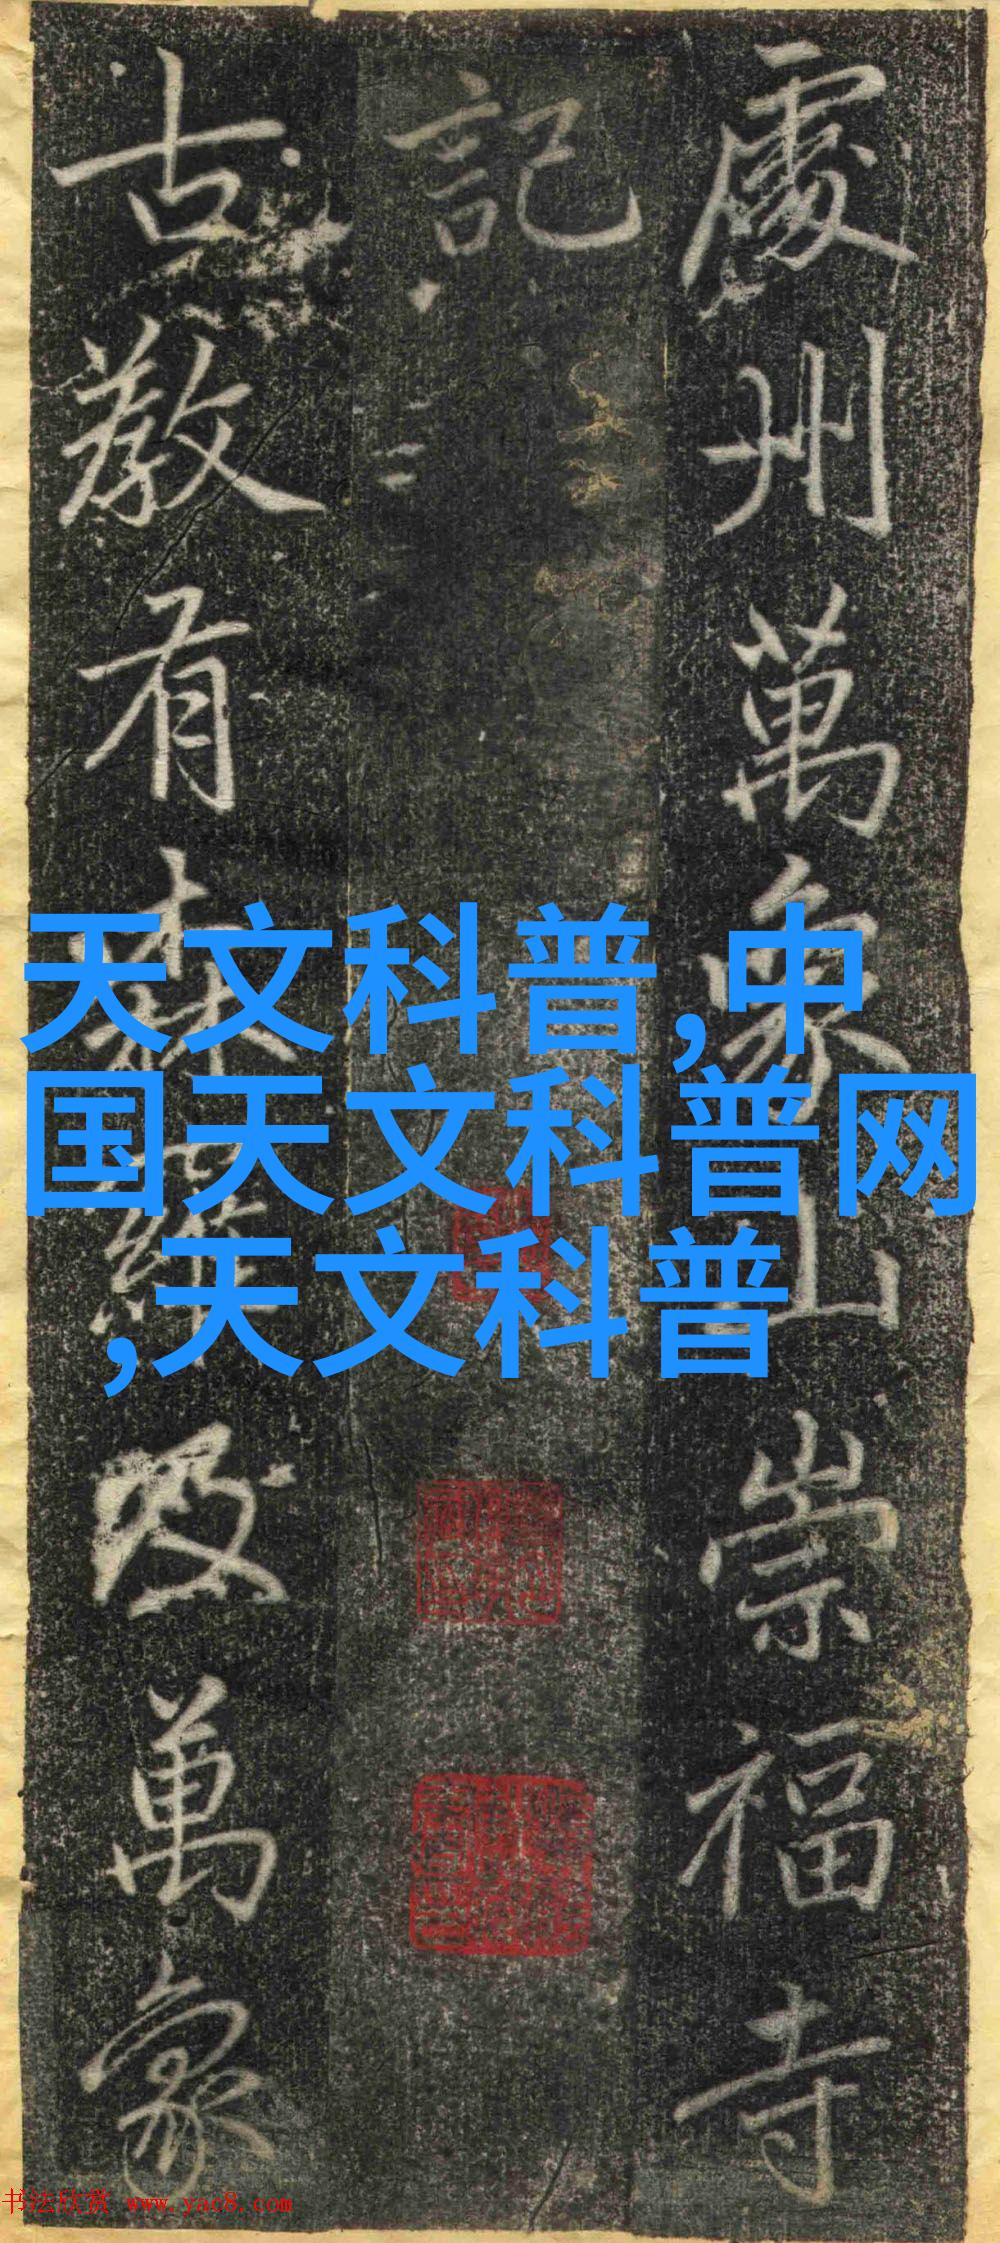 處州萬象山崇福寺
記
古教有森羅及萬象
天文科普,中
国天文科普网
,天文科普
书法欣赏 www.yac8.com